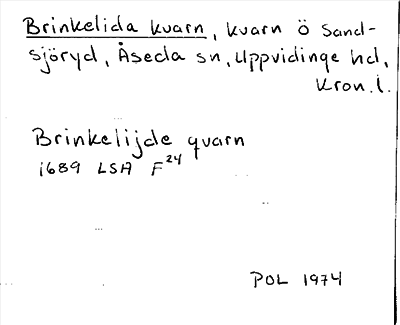 Brinkelida kvarn, kvarn ö Sand-
sjöryd, Åseda sn, Uppvidinge hd,
Kron. l.
Brinkelijde qvarn
1689 LSA F24
POL 1974